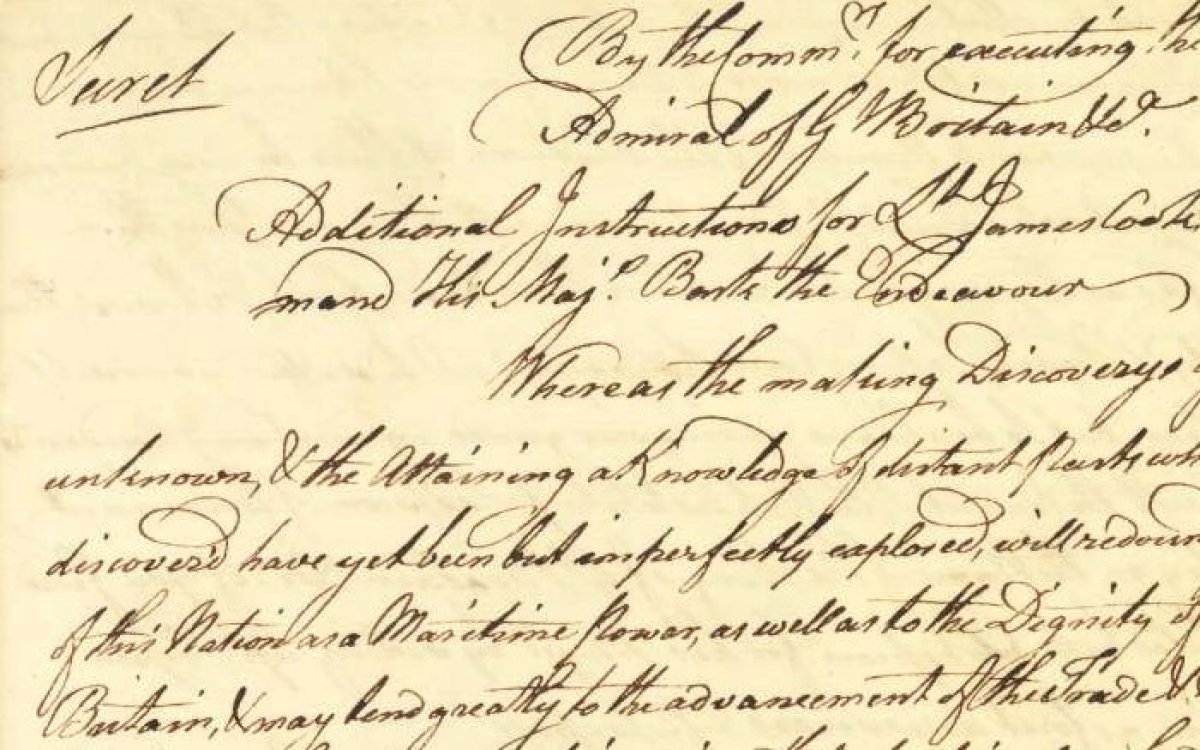 Secret
By the Comm.rs for executing the
Admiral of G Britain &c.a
Additional Instructions for L.t James Cook
mand His Maj.s Bark the Endeavour
Whereas the making Discoverys
unknown, & the Attaining a Knowledge of distant Parts
discover'd have yet been but imperfectly explored, will redoun
of this Nation as a Maritime Power, as well as to the Dignity of
Britain, & may tend greatly to the advancement of the Trade &